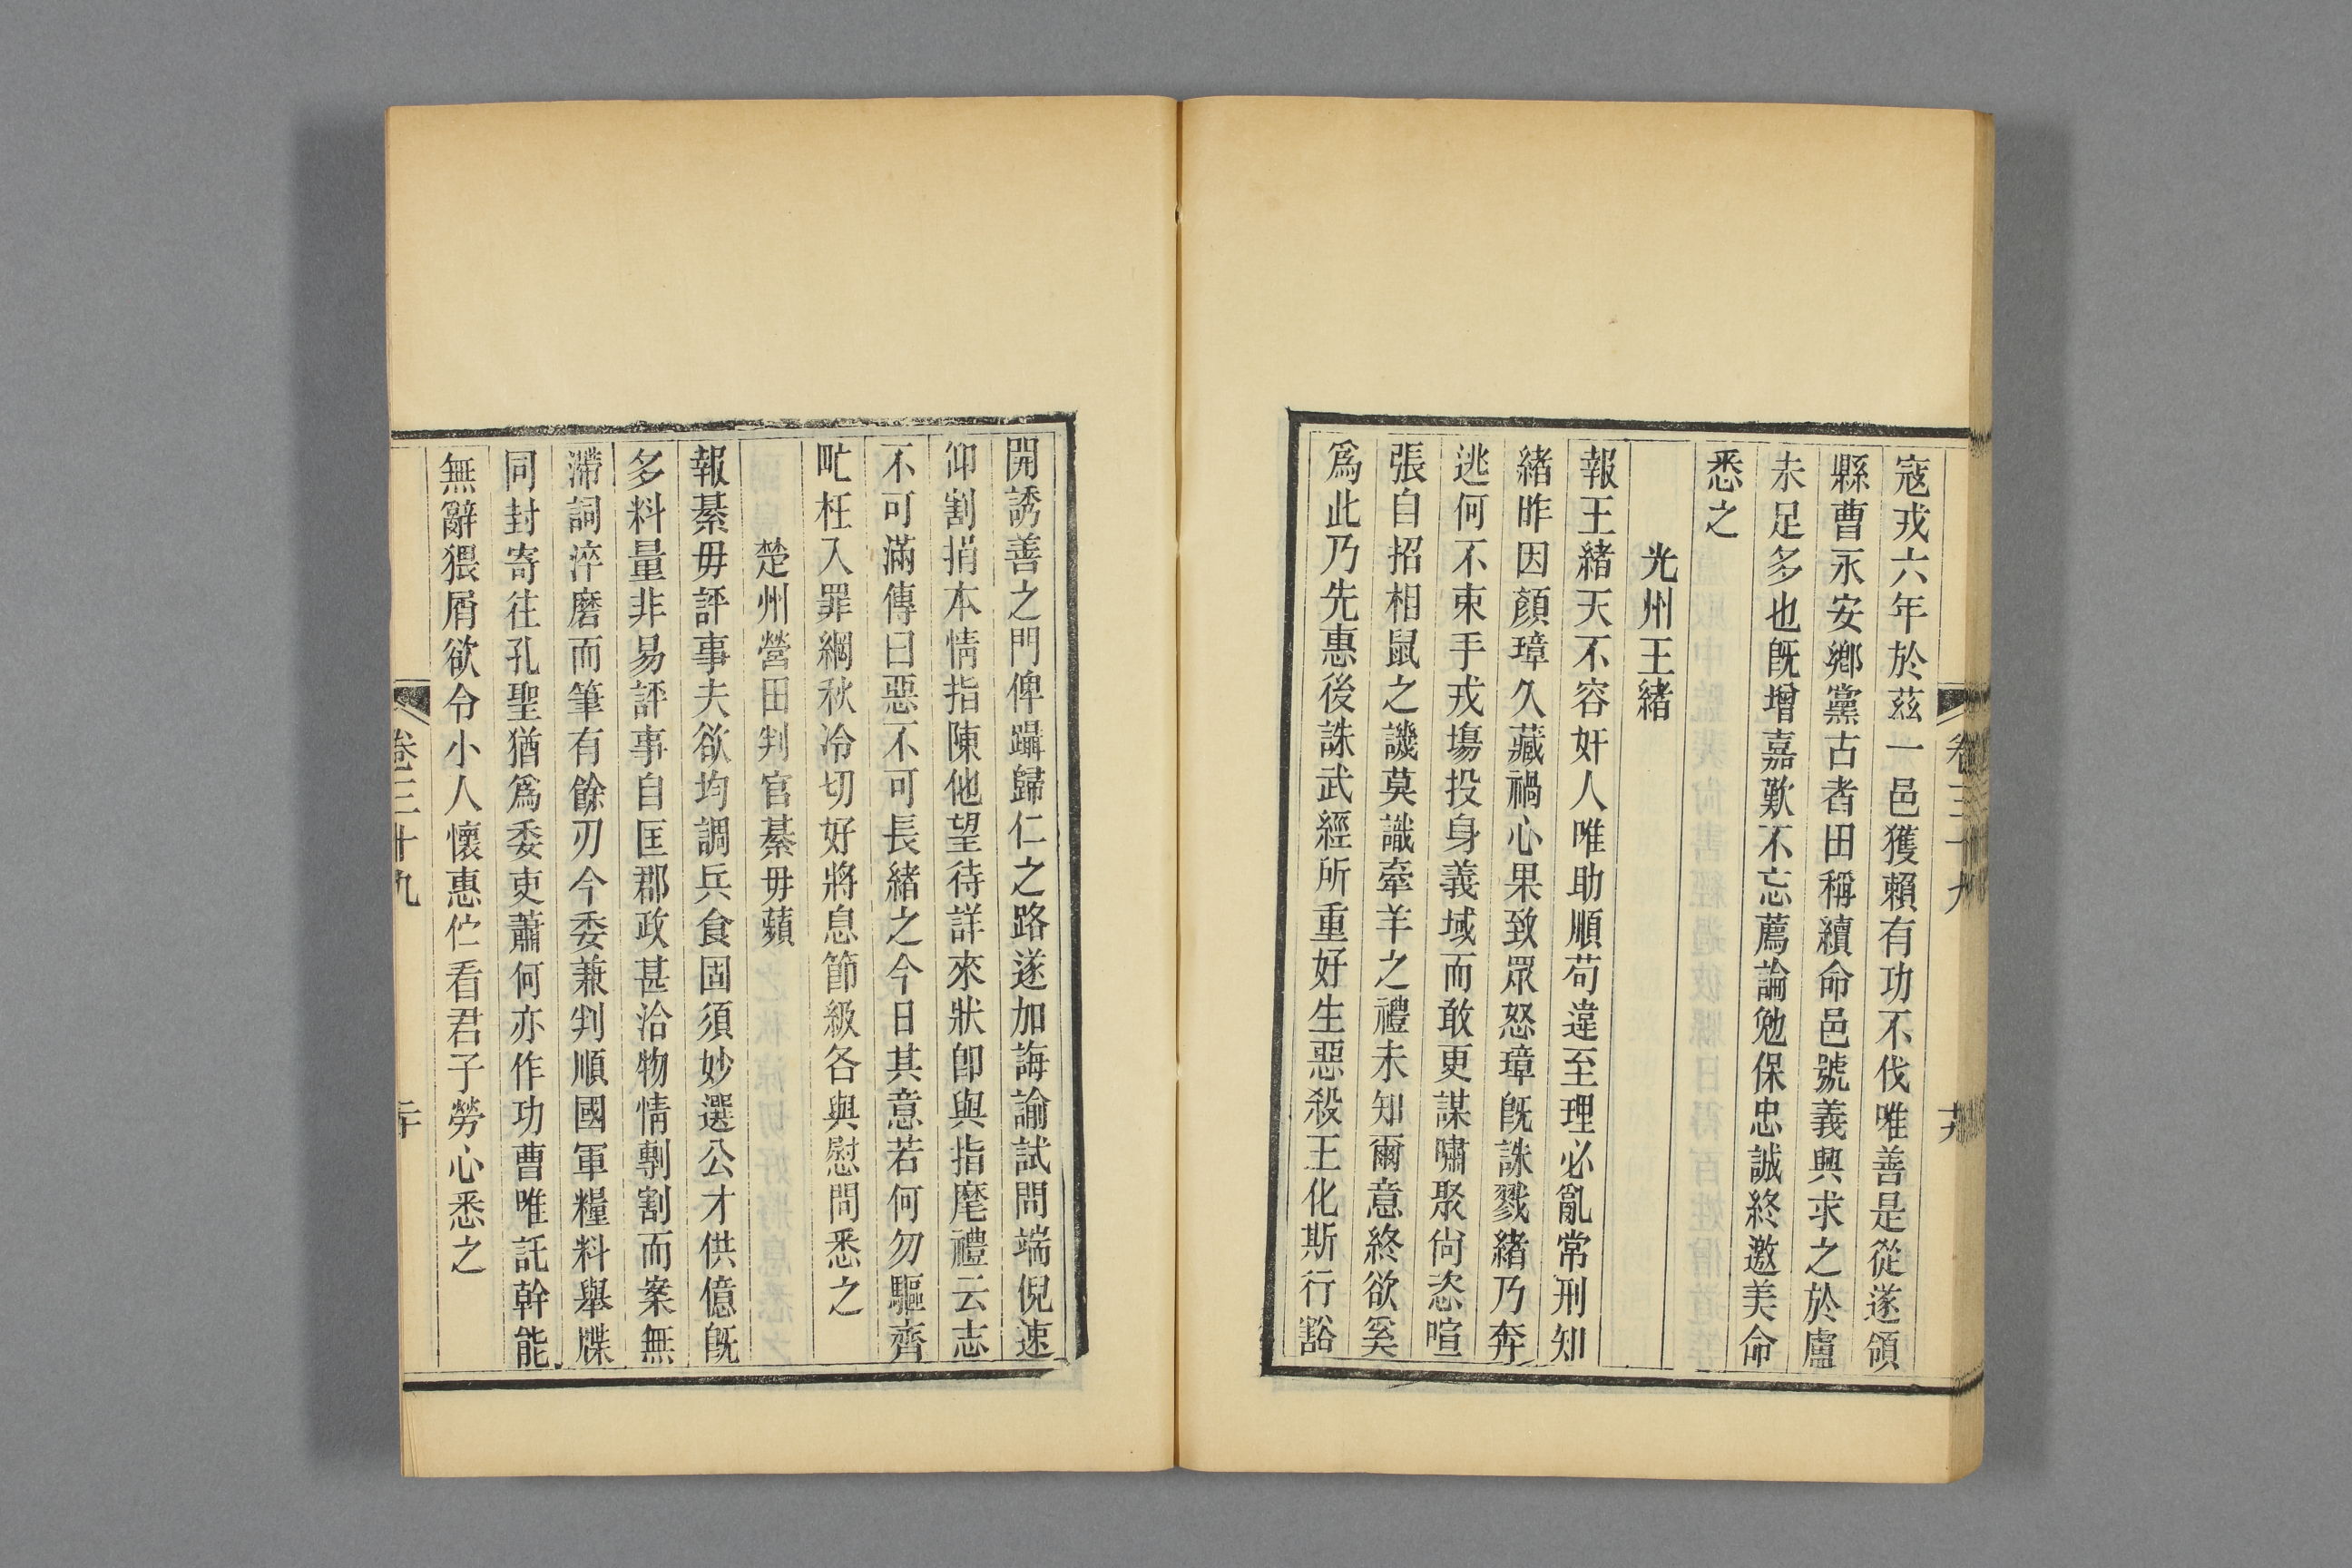 寇戎六年於茲一邑獲賴有功不伐唯善是從遂領
縣曹永安鄉黨古者田稱續命邑號義興求之於盧
未足多也旣增嘉歎不忘薦論勉保忠誠終邀美命
悉之
光州王緒
報王緒天不容奸人唯助順苟違至理必亂常刑知
緒昨因顏璋久藏禍心果致眾怒璋旣誅戮緒乃奔
逃何不束手戎塲投身義域而敢更謀嘯聚尙恣喧
張自招相鼠之譏莫識牽羊之禮未知爾意終欲奚
爲此乃先惠後誅武經所重好生惡殺王化斯行豁
卷三十九
開誘善之門俾躡歸仁之路遂加誨諭試問端倪速
仰割捐本情指陳他望待詳來狀卽與指麾禮云志
不可滿傳曰惡不可長緒之今日其意若何勿驅齊
甿枉入罪綱秋冷切好將息節級各與慰問悉之
楚州營田判官綦毋蘋
報綦毋評事夫欲均調兵食固須妙選公才供億旣
多料量非易評事自匡郡政甚洽物情剸割而案無
滯詞淬磨而筆有餘刃今委兼判順國軍糧料舉牒
同封寄往孔聖猶爲委吏蕭何亦作功曹唯託幹能
無辭猥屑欲令小人懷惠佇看君子勞心悉之
卷三十九
二十